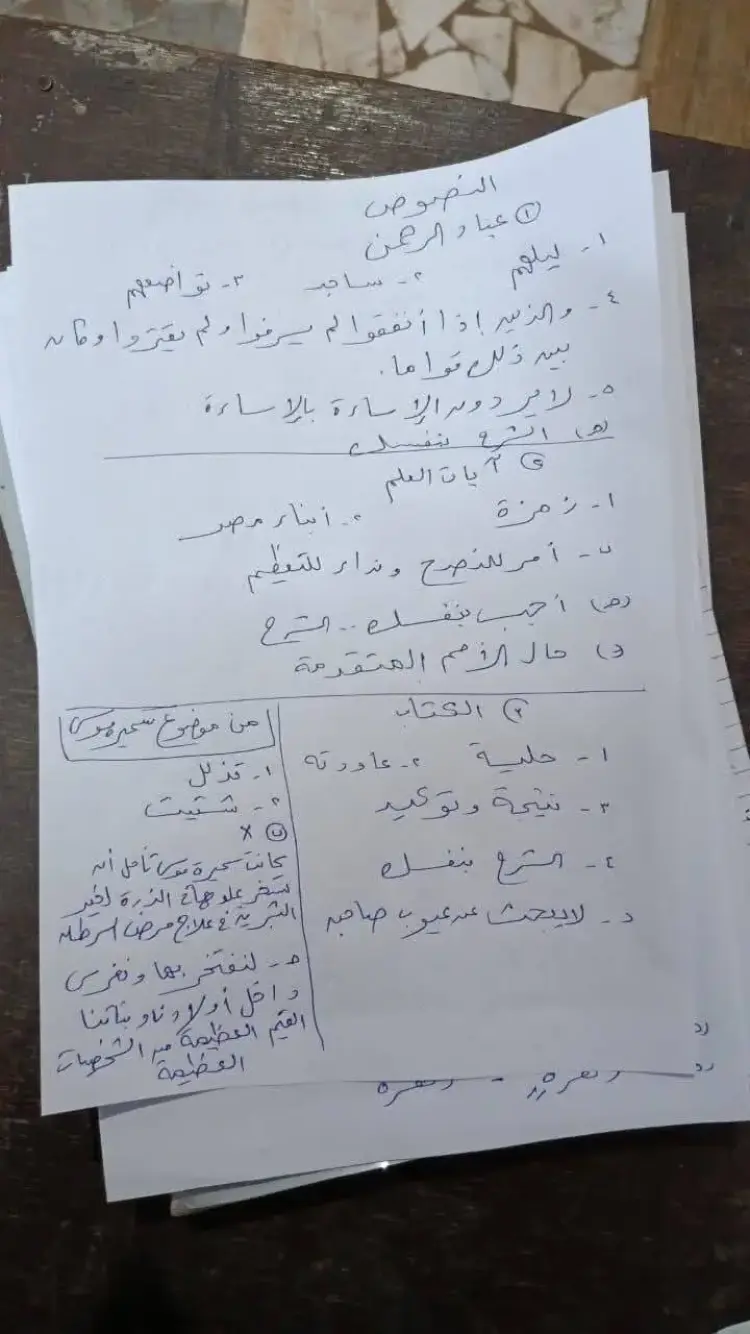 النصوص
① عباد الرحمن
١- ليلهم ٢- ساجد ٣- تواضعهم
٤- والذين إذا أنفقوا لم يسرفوا ولم يقتروا وكان
بين ذلك قواما.
٥- لا يردون الإساءة بالإساءة
(هـ) الشرح بنفسك
② آيات العلم
١- زمزة ٢- أبناء مصر
ب- أمر للنصح ونداء للتعظيم
(هـ) أجب بنفسك .. الشرح
(د) حال الأمم المتقدمة
③ الكتاب
١- حلية ٢- عاودته
٣- نتيجة وتوكيد
٤- الشرح بنفسك
د- لا يبحث عن عيوب صاحبه
من موضوع سميرة موسى
١- تذلل
٢- شتيت
ⓑ X
كانت سميرة موسى تأمل أن
تسخر علومها في الذرة لخير
البشرية في علاج مرض السرطان
هـ- لنفتخر بها ونغرس
داخل أولادنا وبناتنا
القيم العظيمة من الشخصيات
العظيمة